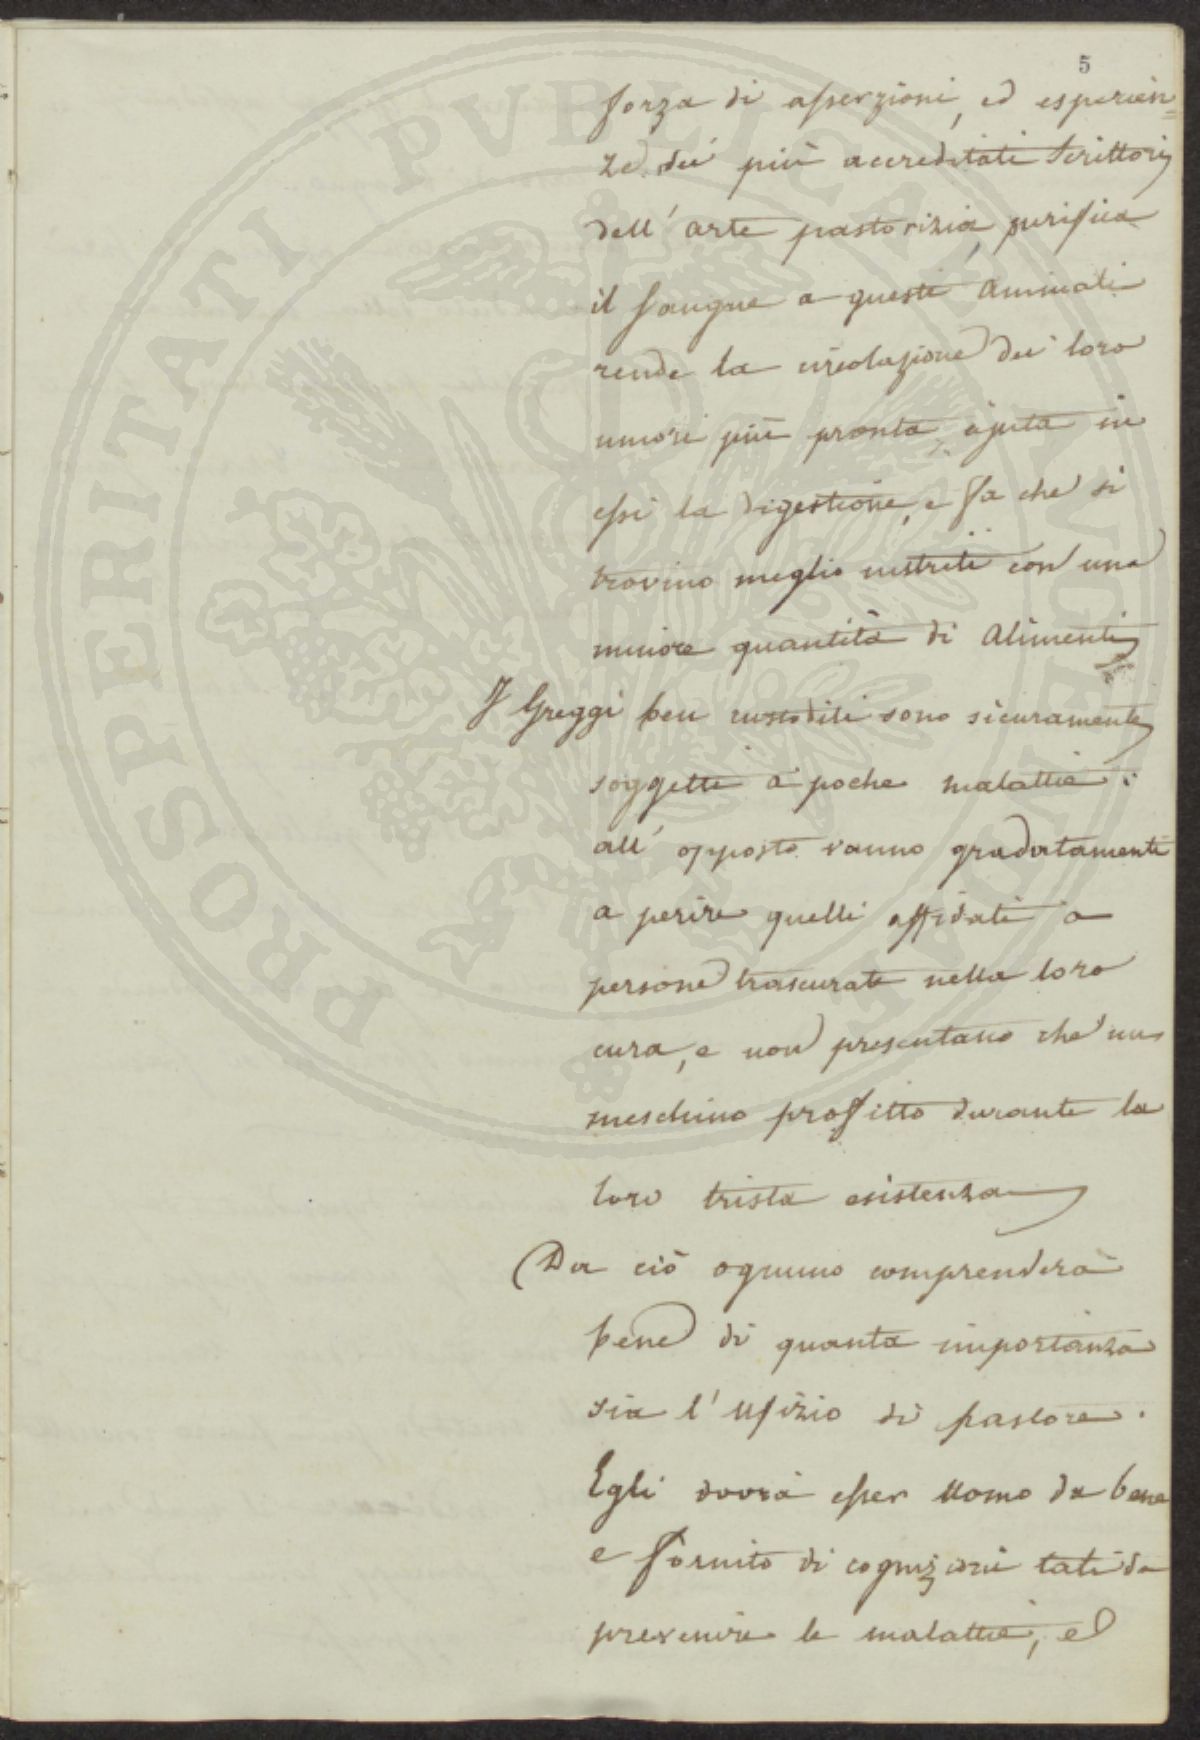 5
forza di asserzioni, ed esperien=
ze dei più accreditati Scrittori
dell' arte pastorizia, purifica
il sangue a questi animali
rende la circolazione dei loro
umori più pronta, ajuta in
essi la digestione, e fa che si
trovino meglio nutriti con una
minore quantità di alimenti
I Greggi ben custoditi sono sicuramente
soggetti a poche malattie:
all' opposto vanno gradatamente
a perire quelli affidati a
persone trascurate nella loro
cura, e non presentano che un
meschino profitto durante la
loro trista esistenza
Da ciò ognuno comprenderà
bene di quanta importanza
sia l' Ufizio di pastore.
Egli dovrà esser Uomo da bene
e fornito di cognizioni tali da
prevenire le malattie, ed
PROSPERITATI PVBLICAE AVGENDAE